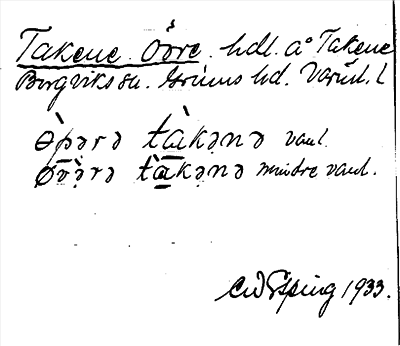 Takene. Övre. hdl. a° Takene
Borgviks sn. Grums hd. Värml. l
ø̀þərə tàkənə vanl.
ø̀v̄ərə tàkənə mindre vanl.
CW Esping 1933.